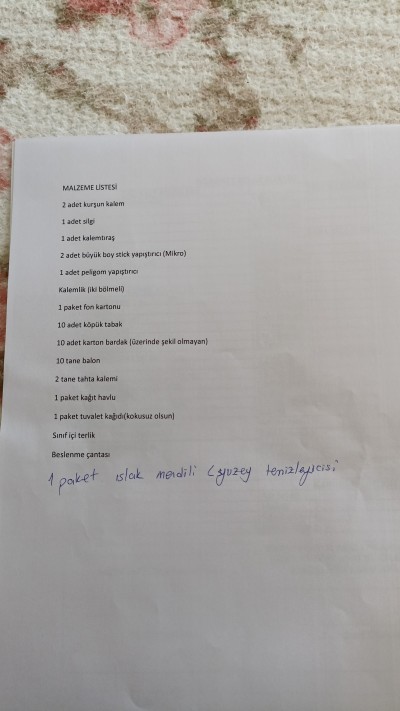 MALZEME LİSTESİ
2 adet kurşun kalem
1 adet silgi
1 adet kalemtıraş
2 adet büyük boy stick yapıştırıcı (Mikro)
1 adet peligom yapıştırıcı
Kalemlik (iki bölmeli)
1 paket fon kartonu
10 adet köpük tabak
10 adet karton bardak (üzerinde şekil olmayan)
10 tane balon
2 tane tahta kalemi
1 paket kağıt havlu
1 paket tuvalet kağıdı(kokusuz olsun)
Sınıf içi terlik
Beslenme çantası
1 paket ıslak mendili (yüzey temizleyicisi